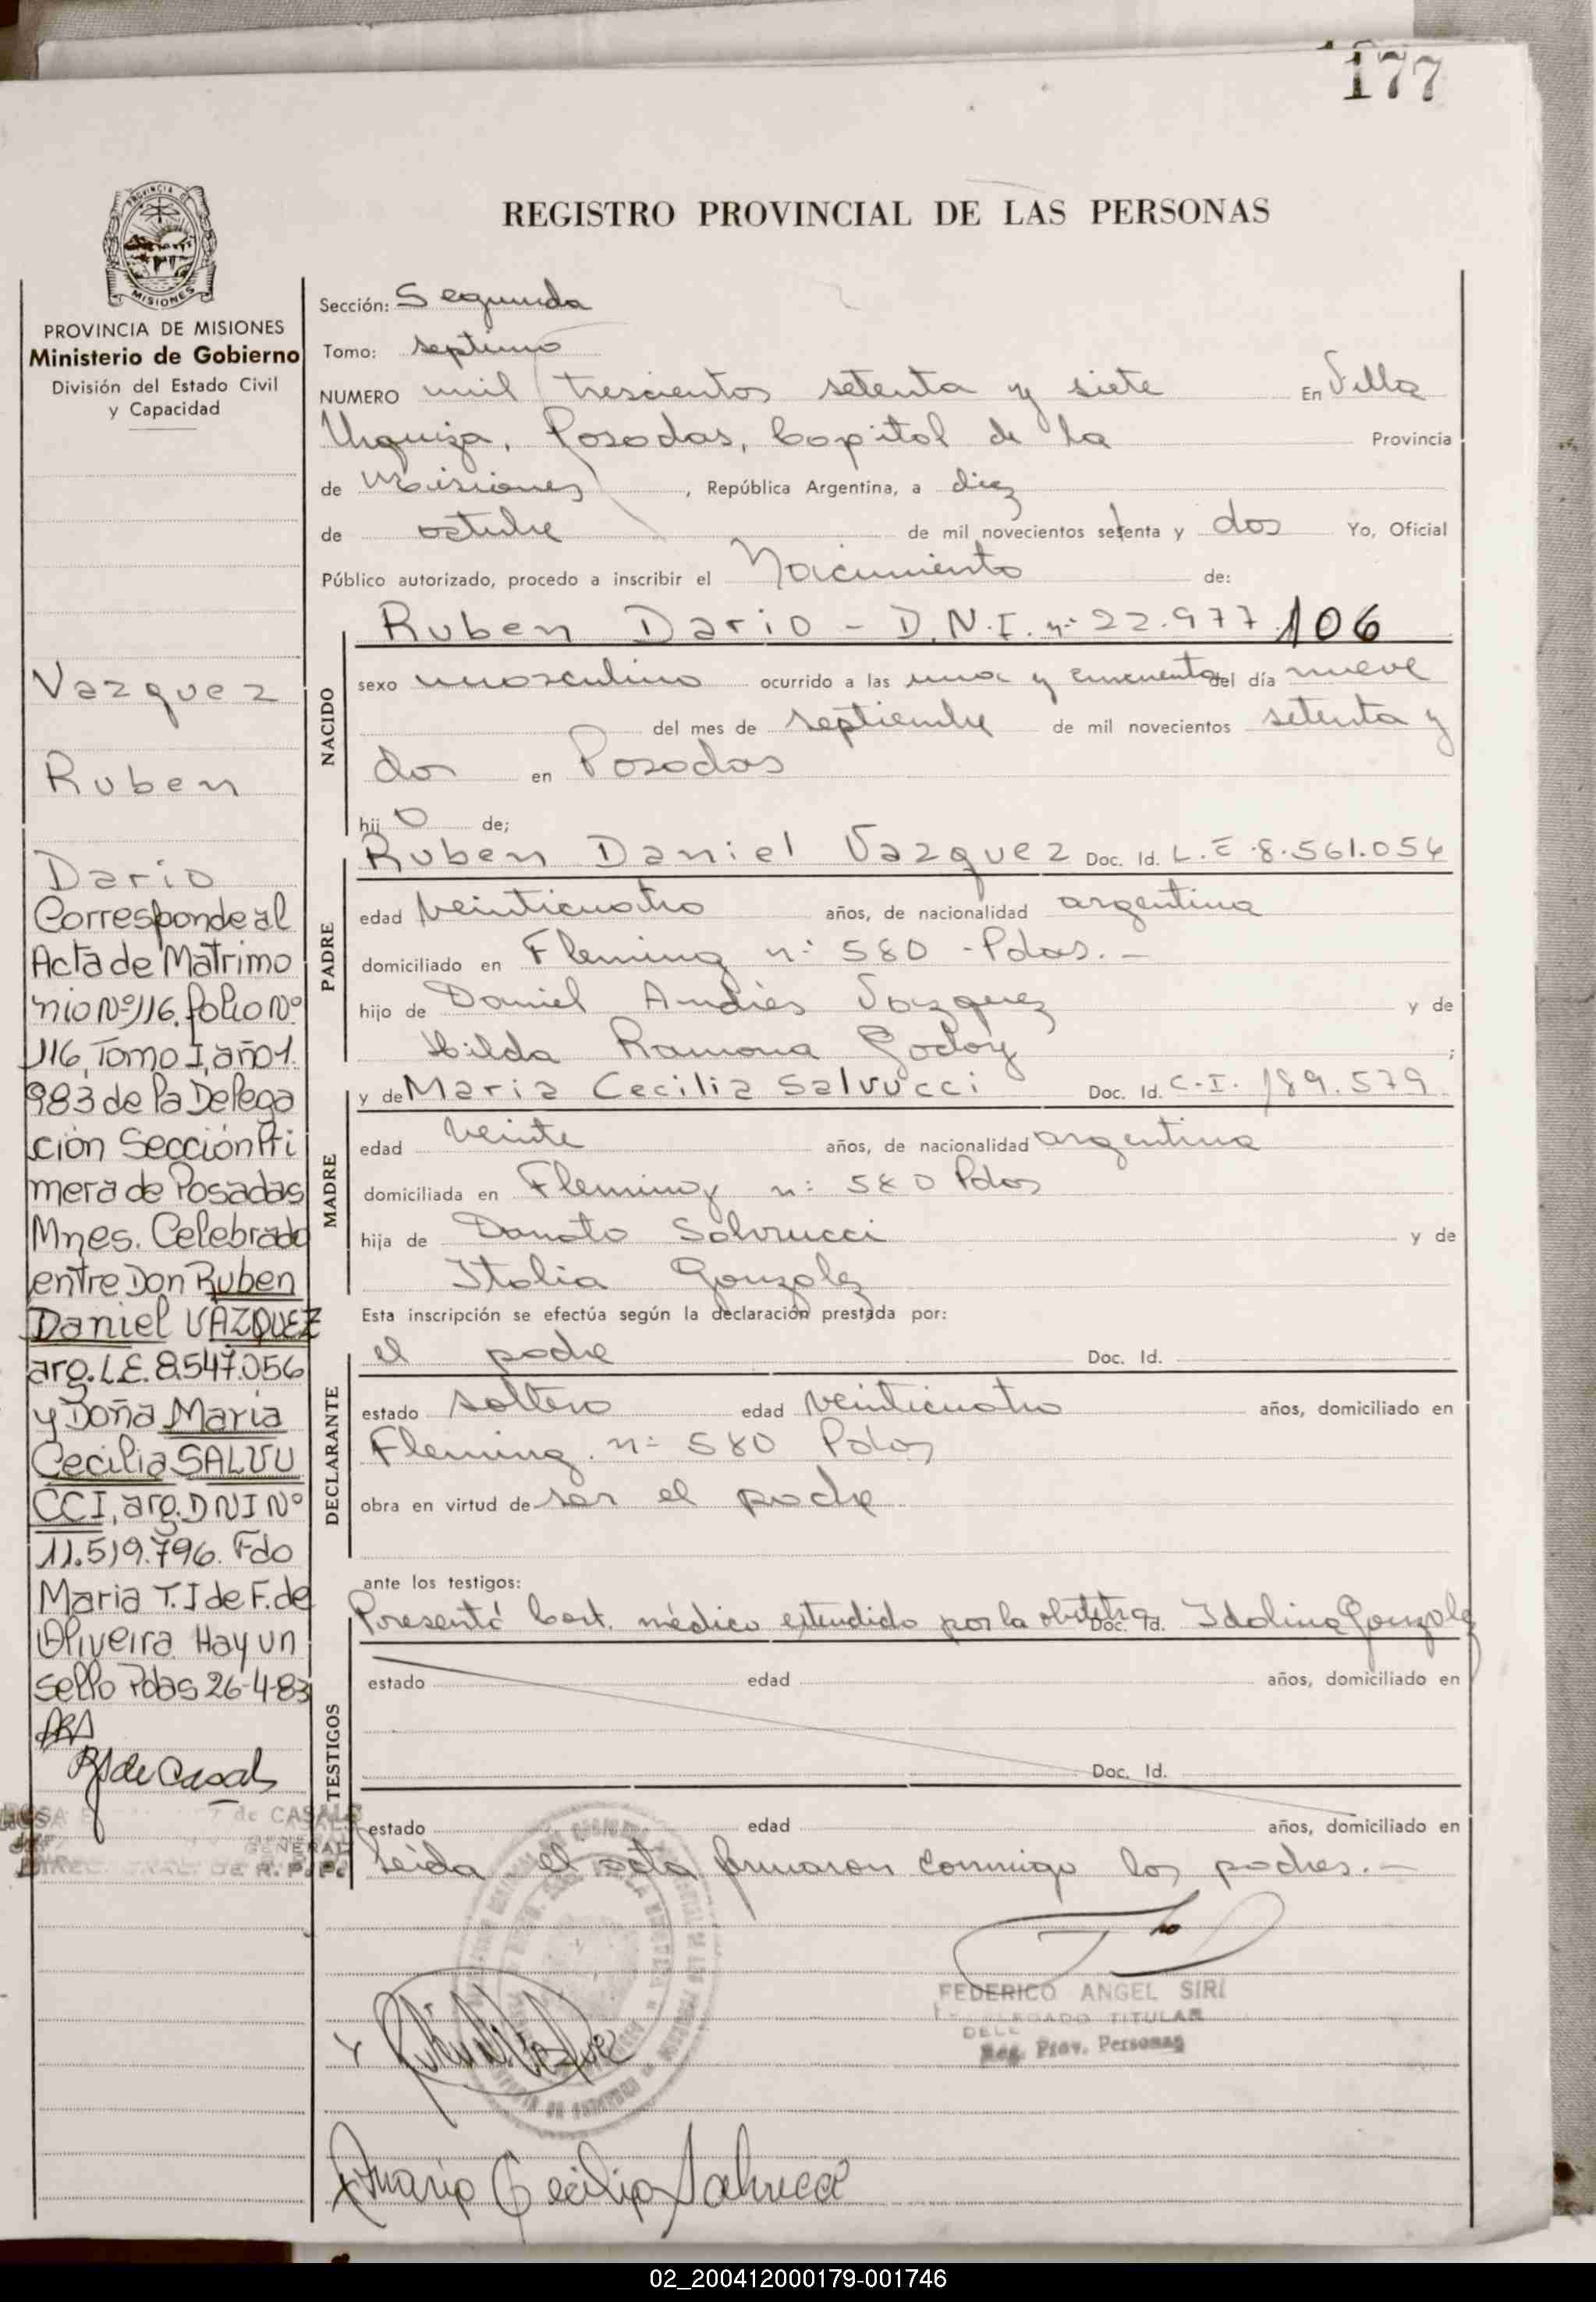 177
PROVINCIA DE MISIONES
Ministerio de Gobierno
División del Estado Civil
y Capacidad
Vazquez
Ruben
Dario
Corresponde al
Acta de Matrimo
nio Nº 116, folio Nº
116, Tomo I, año 1.
983 de la Delega
ción Sección Pri
mera de Posadas
Mnes. Celebrado
entre Don Ruben
Daniel VAZQUEZ
arg. L.E. 8.547.056
y Doña Maria
Cecilia SALVU
CCI, arg. DNI Nº
11.519.796. Fdo
Maria T. I de F. de
Oliveira. Hay un
sello Pdas 26-4-83
de Casals
ROSA de CASALS
GENERAL
DE R. P. P.
REGISTRO PROVINCIAL DE LAS PERSONAS
Sección: Segunda
Tomo: septimo
NUMERO mil trescientos setenta y siete En Villa
Urquiza, Posadas, Capital de la Provincia
de Misiones, República Argentina, a diez
de octubre de mil novecientos setenta y dos Yo, Oficial
Público autorizado, procedo a inscribir el Nacimiento de:
NACIDO
Ruben Dario - D.N.I. nº 22.977.106
sexo masculino ocurrido a las una y cincuenta del día nueve
del mes de septiembre de mil novecientos setenta y
dos en Posadas
hijo de;
PADRE
Ruben Daniel Vazquez Doc. Id. L.E. 8.561.054
edad veinticuatro años, de nacionalidad argentina
domiciliado en Fleming nº 580 - Pdas. -
hijo de Daniel Andrés Vazquez y de
Hilda Ramona Godoy ;
MADRE
y de Maria Cecilia Salvucci Doc. Id. C.I. 189.579
edad veinte años, de nacionalidad argentina
domiciliada en Fleming nº 580 Pdas
hija de Donato Salvucci y de
Italia Gonzalez
Esta inscripción se efectúa según la declaración prestada por:
DECLARANTE
el padre Doc. Id.
estado soltero edad veinticuatro años, domiciliado en
Fleming nº 580 Pdas
obra en virtud de ser el padre
ante los testigos:
TESTIGOS
Presentó Cert. médico extendido por la obstetra Doc. Id. Idalina Gonzalez
estado edad años, domiciliado en
Doc. Id.
estado edad años, domiciliado en
Leida el acta firmaron conmigo los padres. -
FEDERICO ANGEL SIRI
DELEGADO TITULAR
Reg. Prov. Personas
Maria Cecilia Salvucci
02_200412000179-001746